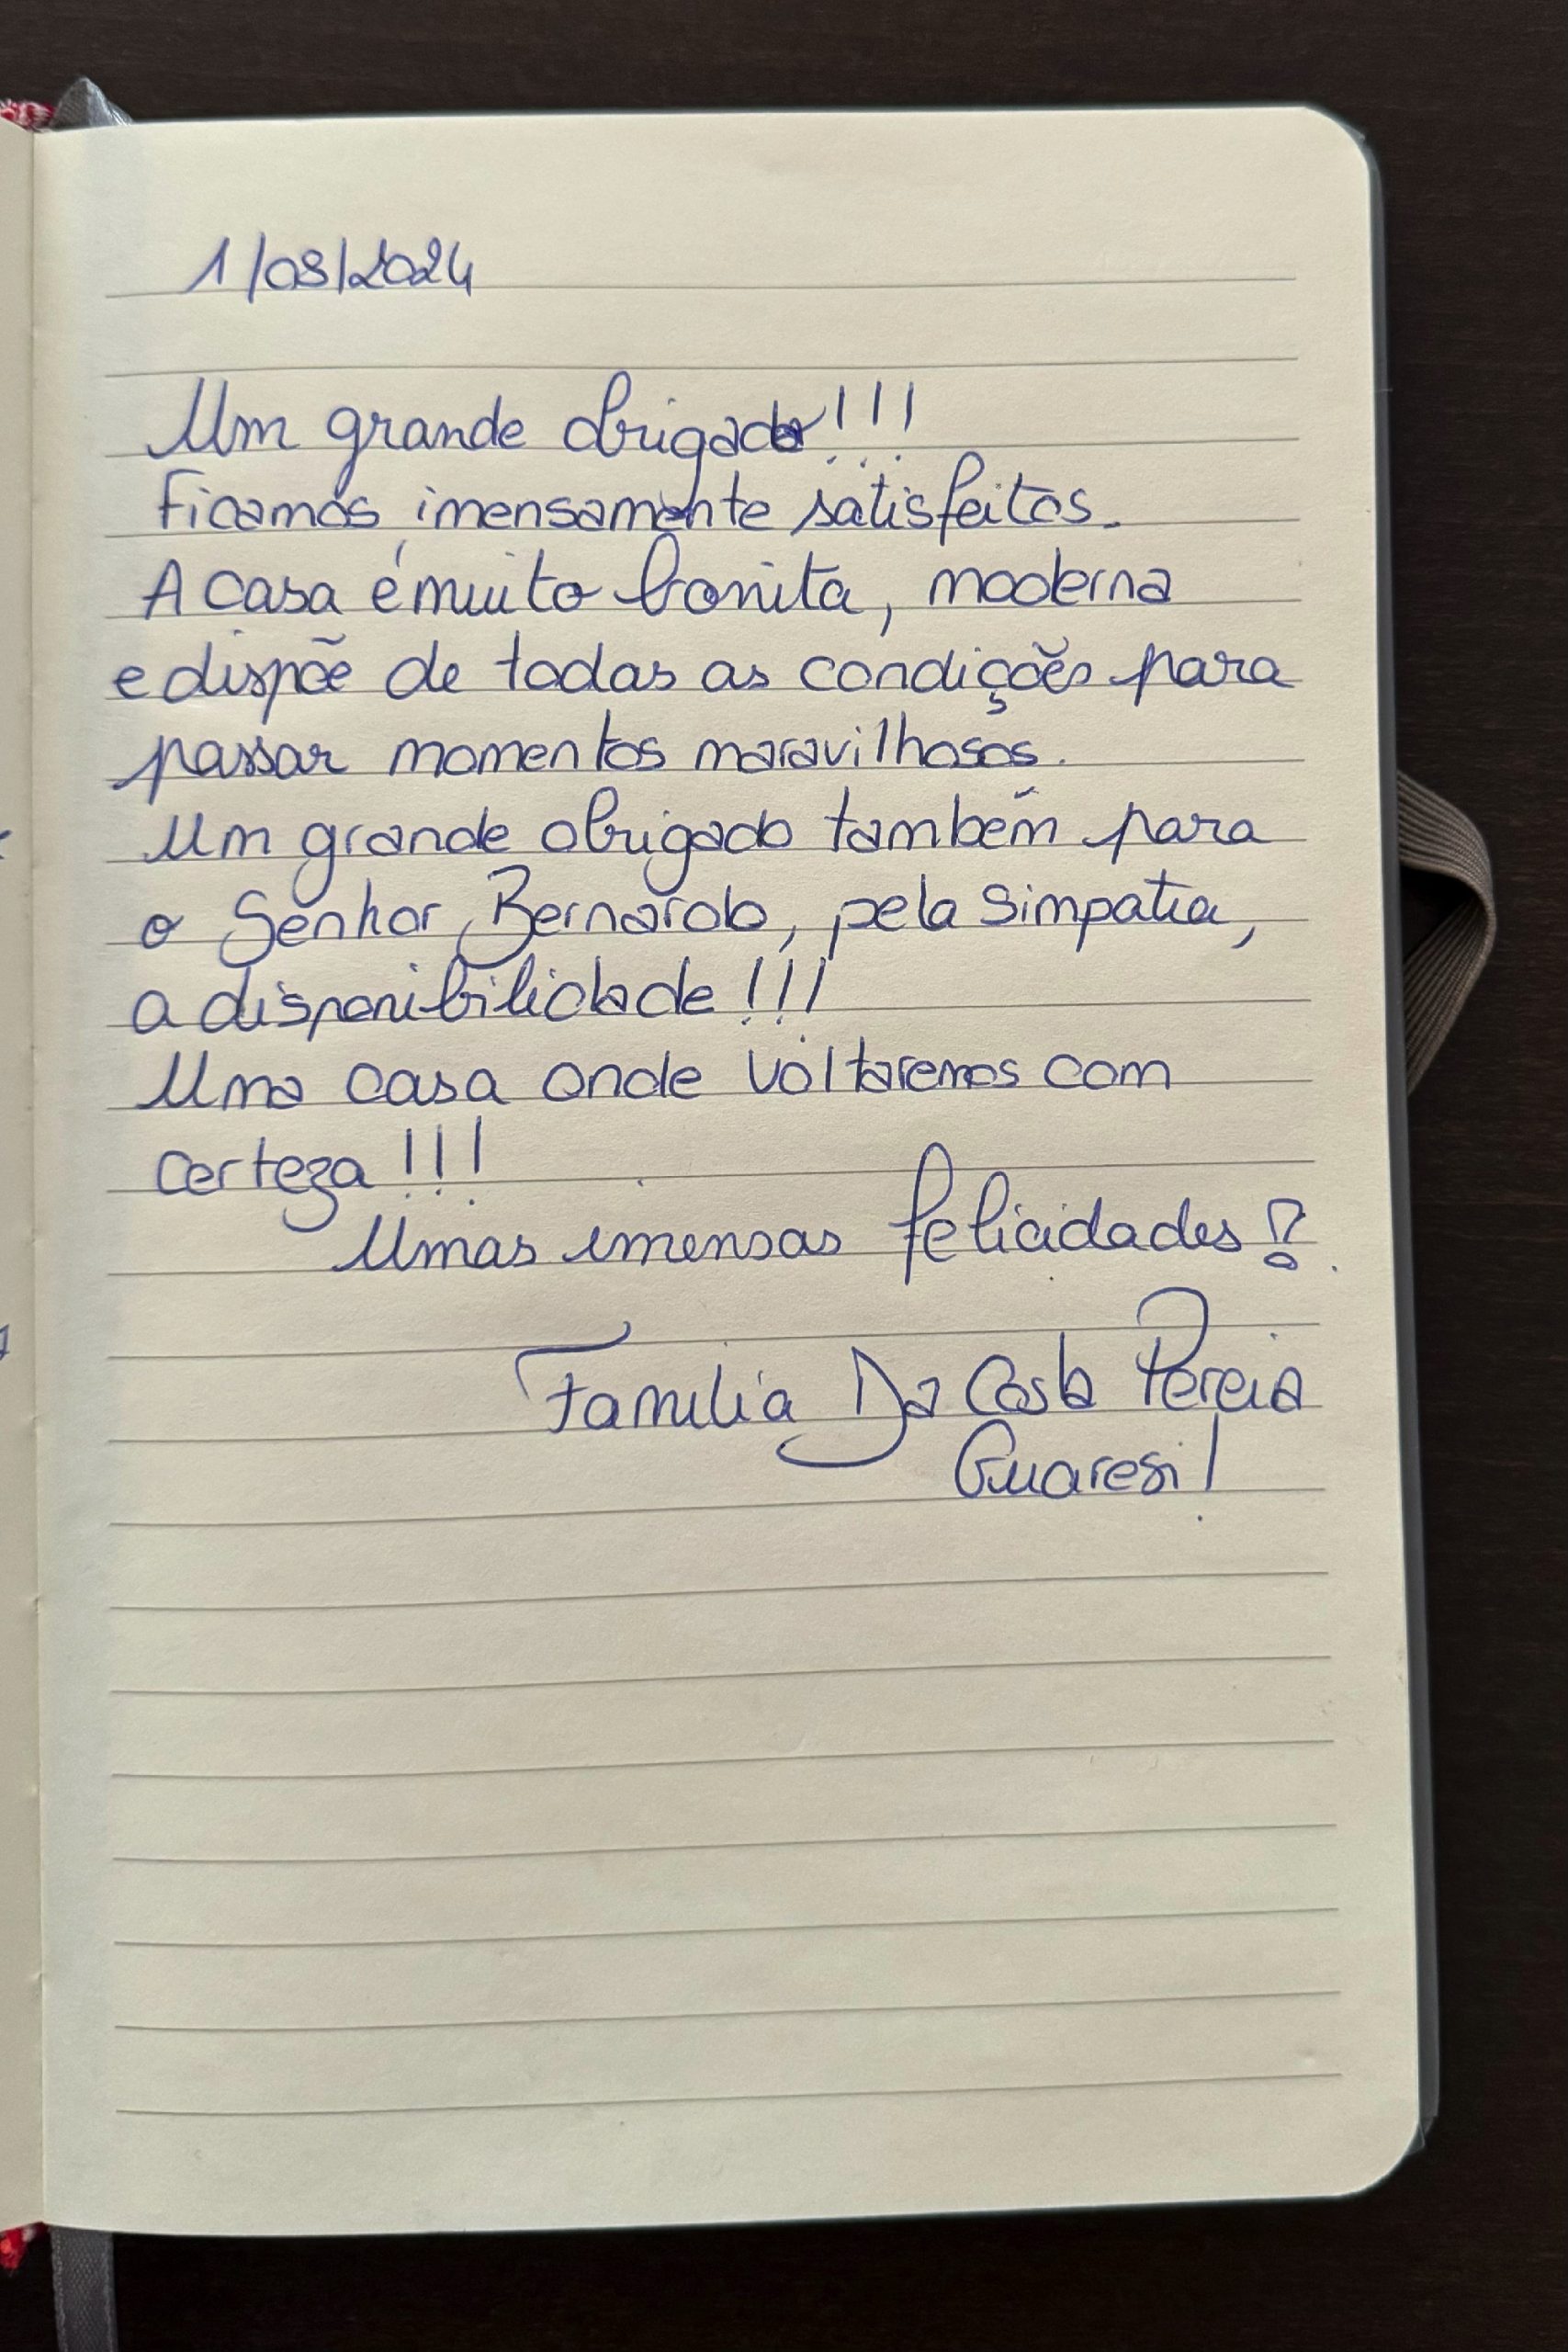 1/08/2024
Um grande obrigado!!!
Ficamos imensamente satisfeitos.
A casa é muito bonita, moderna
e dispõe de todas as condições para
passar momentos maravilhosos.
Um grande obrigado também para
o Senhor Bernardo, pela simpatia,
a disponibilidade!!!
Uma casa onde voltaremos com
certeza!!!
Umas imensas felicidades!
Familia Da Costa Pereia
Guaresi!